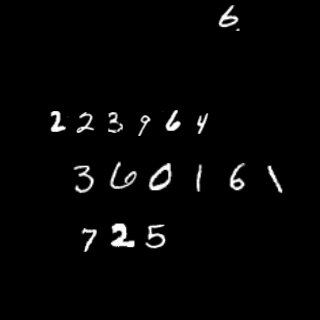 6
223964
360161
725